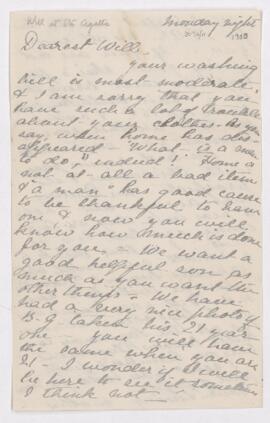 Will at Ste Agathe
Monday night
1913
Dearest Will -
your washing
bill is most moderate,
& I am sorry that you
have such a lot of trouble
about your clothes. As you
say, when home has dis-
appeared - "What is a man
to do," indeed! Home is
not at all a bad item
& "a man" has good cause
to be thankful to have
one & now you will
know how much is done
for you - We want a
good helpful son as
much as you want the
other things - We have
had a very nice photo of
B.G taken his 21 year
one you will have
the same when you are
21 - I wonder if I will
be here to see it sometimes
I think not -